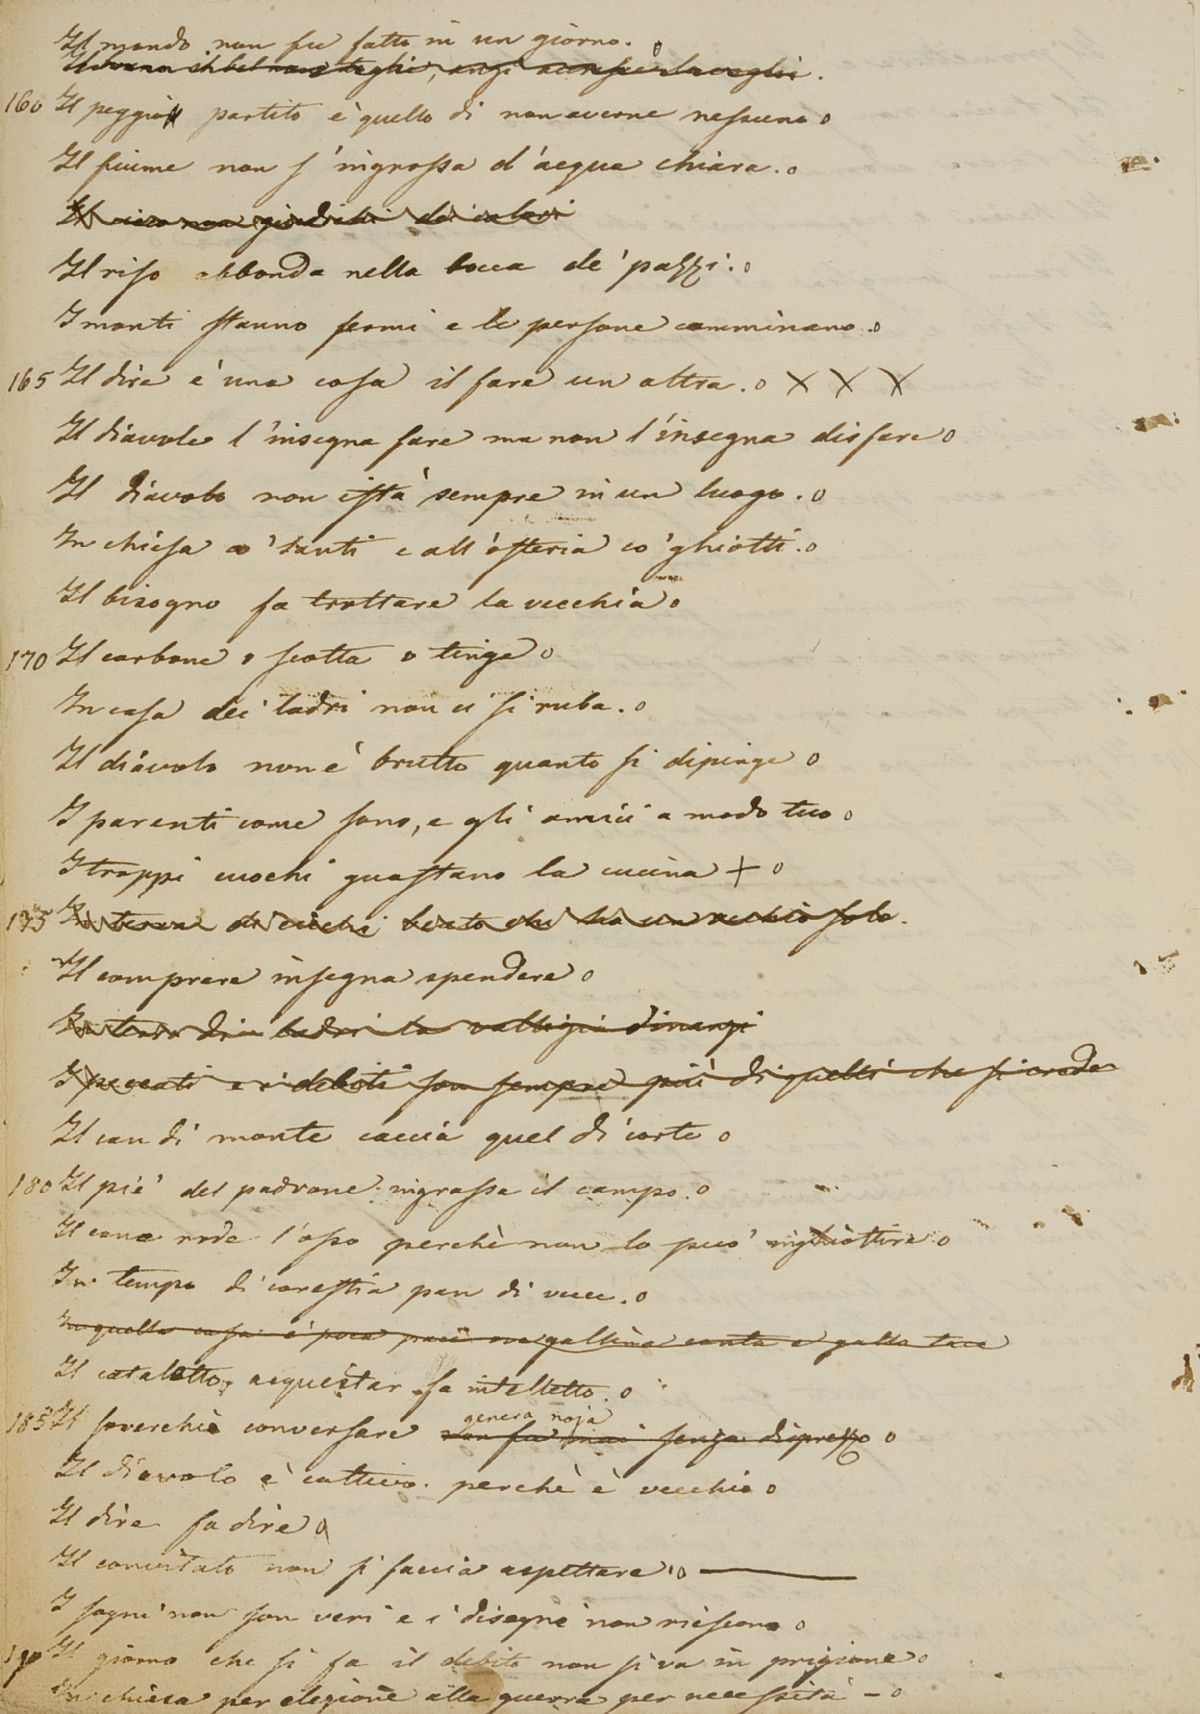 Il mondo non fu fatto in un giorno.
160 Il peggior partito è quello di non averne nessuno o
Il fiume non s'ingrossa d'acqua chiara. o
Il cieco non giudichi dei colori
Il riso abbonda nella bocca de' pazzi. o
I monti stanno fermi e le persone camminano. o
165 Il dire è una cosa il fare un altra. o X X X
Il diavolo l'insegna fare ma non l'insegna disfare o
Il diavolo non istà sempre in un luogo. o
In chiesa co' santi e all'osteria co' ghiotti. o
Il bisogno fa trottare la vecchia o
170 Il carbone o scotta o tinge o
In casa dei ladri non ci si ruba. o
Il diavolo non è brutto quanto si dipinge o
I parenti come sono, e gli amici a modo tuo o
I troppi cuochi guastano la cucina + o
175 In terra di ciechi beato chi ha un occhio solo.
Il comprare insegna spendere o
In terra di ladri la valligia dinanzi
I peccati e i debiti son sempre più di quelli che si crede
Il can di monte caccia quel di corte o
180 Il piè del padrone ingrassa il campo. o
Il cane rode l'osso perchè non lo può inghiottire. o
In tempo di carestia pan di vecce. o
In quella casa è poca pace ove gallina canta e gallo tace
Il cataletto, acquistar fa intelletto. o
genera noja
185 Il soverchio conversare non fu mai senza disprezzo o
Il diavolo è cattivo perchè è vecchio o
Il dire fa dire o
Il convitato non si faccia aspettare o
I sogni non son veri e i disegni non riescono o
190 Il giorno che si fa il debito non si va in prigione o
In chiesa per elezione alla guerra per necessità - o